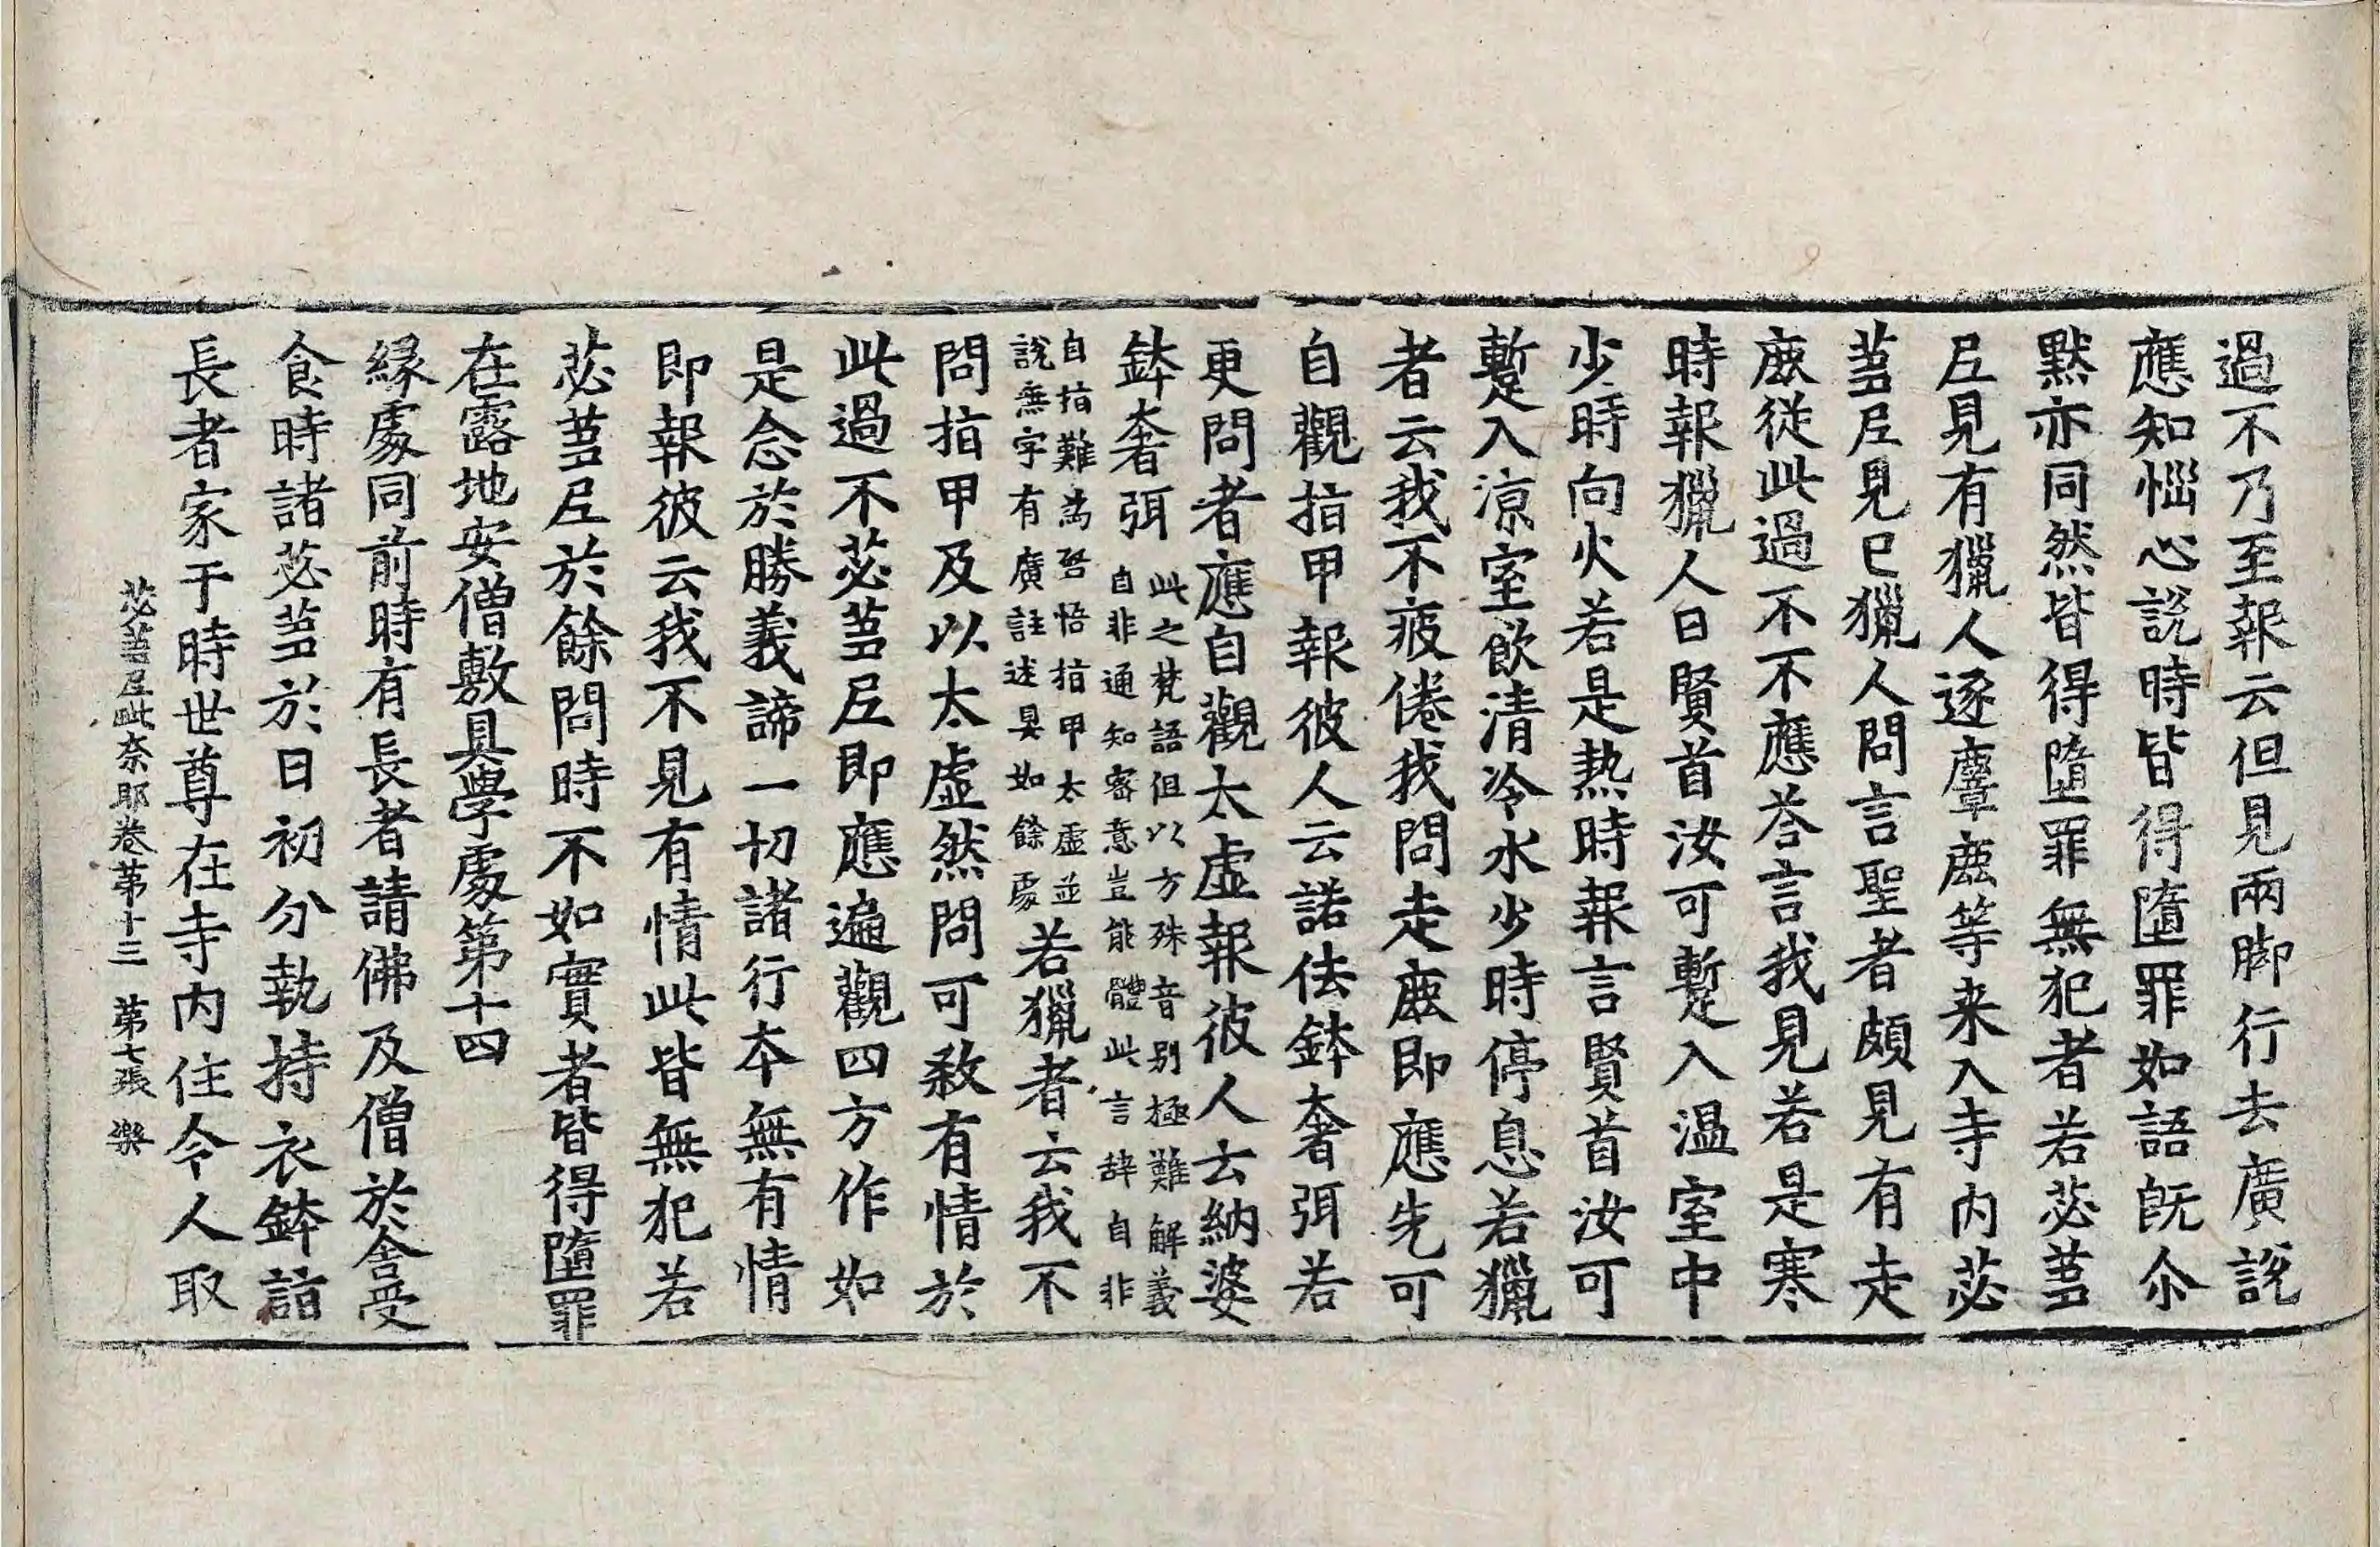 過不乃至報云但見兩脚行去廣說
應知惱心說時皆得墮罪如語旣尒
黙亦同然皆得墮罪無犯者若苾蒭
尼見有獵人逐麞鹿等来入寺内苾
蒭尼見已獵人問言聖者頗見有走
鹿從此過不不應荅言我見若是寒
時報獵人曰賢首汝可蹔入温室中
少時向火若是熱時報言賢首汝可
蹔入涼室飲清冷水少時停息若獵
者云我不疲倦我問走鹿即應先可
自觀指甲報彼人云諾佉鉢奢弭若
更問者應自觀太虛報彼人云納婆
鉢奢弭此之梵語但以方殊音别極難解義
自非通知密意豈能體此言辝自非
自指難為啓悟指甲太虛並
說無字有廣註述具如餘處若獵者云我不
問指甲及以太虛然問可敎有情於
此過不苾蒭尼即應遍觀四方作如
是念於勝義諦一切諸行本無有情
即報彼云我不見有情此皆無犯若
苾蒭尼於餘問時不如實者皆得墮罪
在露地安僧敷具學處第十四
縁處同前時有長者請佛及僧於舍受
食時諸苾蒭於日初分執持衣鉢詣
長者家于時世尊在寺内住令人取
苾蒭尼毗奈耶卷第十三　第七張　樂